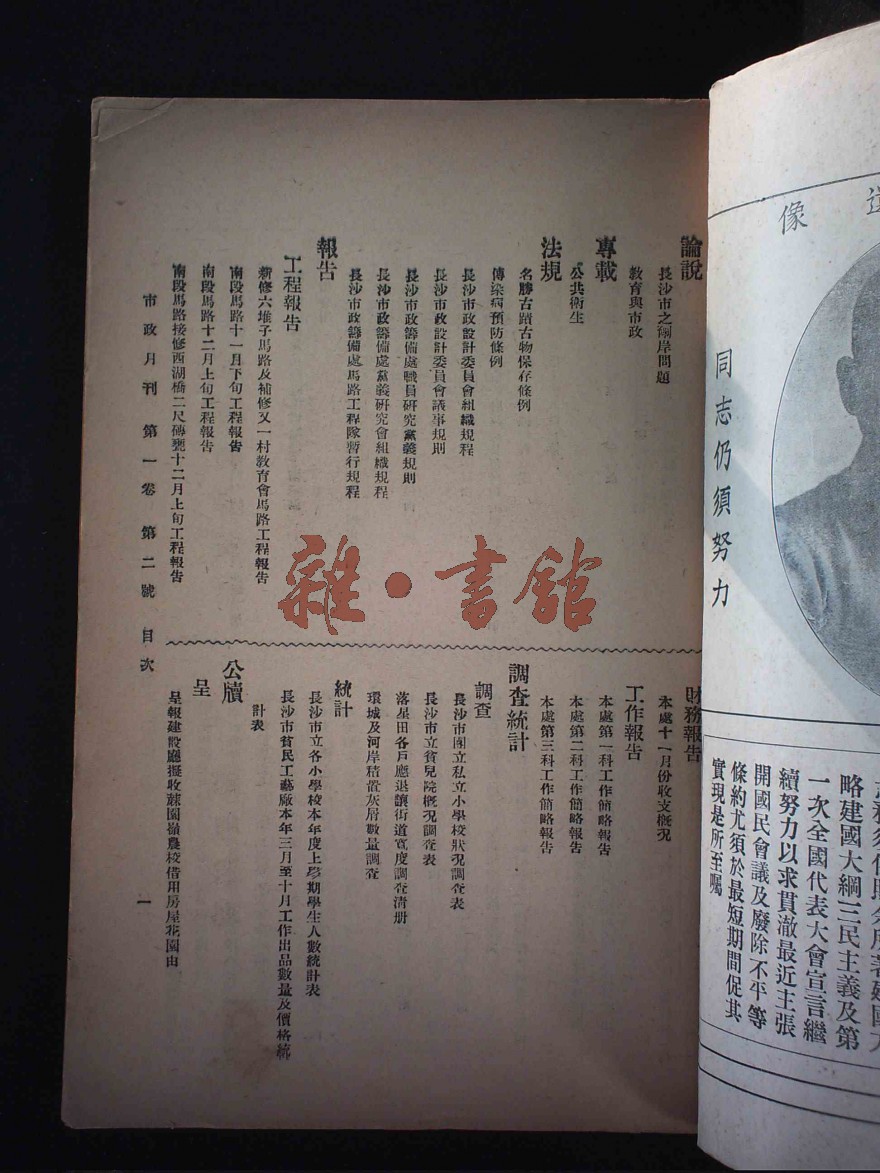 遺像
同志仍須努力
略建國大綱三民主義及第
一次全國代表大會宣言繼
續努力以求貫澈最近主張
開國民會議及廢除不平等
條約尤須於最短期間促其
實現是所至囑
論說
長沙市之湘岸問題
教育與市政
專載
公共衛生
法規
名勝古蹟古物保存條例
傳染病預防條例
長沙市政設計委員會組織規程
長沙市政設計委員會議事規則
長沙市政籌備處職員研究黨義規則
長沙市政籌備處黨義研究會組織規程
長沙市政籌備處馬路工程隊暫行規程
報告
工程報告
新修六堆子馬路及補修又一村教育會馬路工程報告
南段馬路十一月下旬工程報告
南段馬路十二月上旬工程報告
南段馬路接修西湖橋二尺磚甃十二月上旬工程報告
財務報告
本處十一月份收支概況
工作報告
本處第一科工作簡略報告
本處第二科工作簡略報告
本處第三科工作簡略報告
調查統計
調查
長沙市國立私立小學校狀況調查表
長沙市立貧兒院概況調查表
落星田各戶應退讓街道寬度調查清册
環城及河岸積置灰屑數量調查
統計
長沙市立各小學校本年度上學期學生人數統計表
長沙市貧民工藝廠本年三月至十月工作出品數量及價格統
計表
公牘
呈
呈報建設廳擬收蔬園嶺農校借用房屋花園由
市政月刊 第一卷 第二號 目次
一
雜·書館